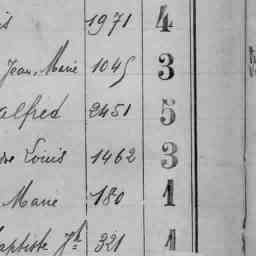 is 1971 4
Jean, Marie 1045 3
alfred 2451 5
dre Louis 1462 3
Marie 180 1
aptiste Jh 321 1